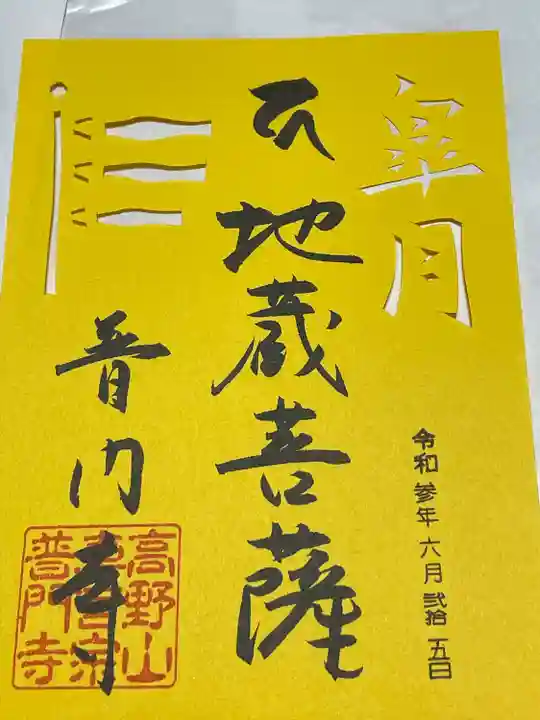 皐月
令和参年六月弐拾五日
地蔵菩薩
普門寺
高野山
真言宗
普門寺